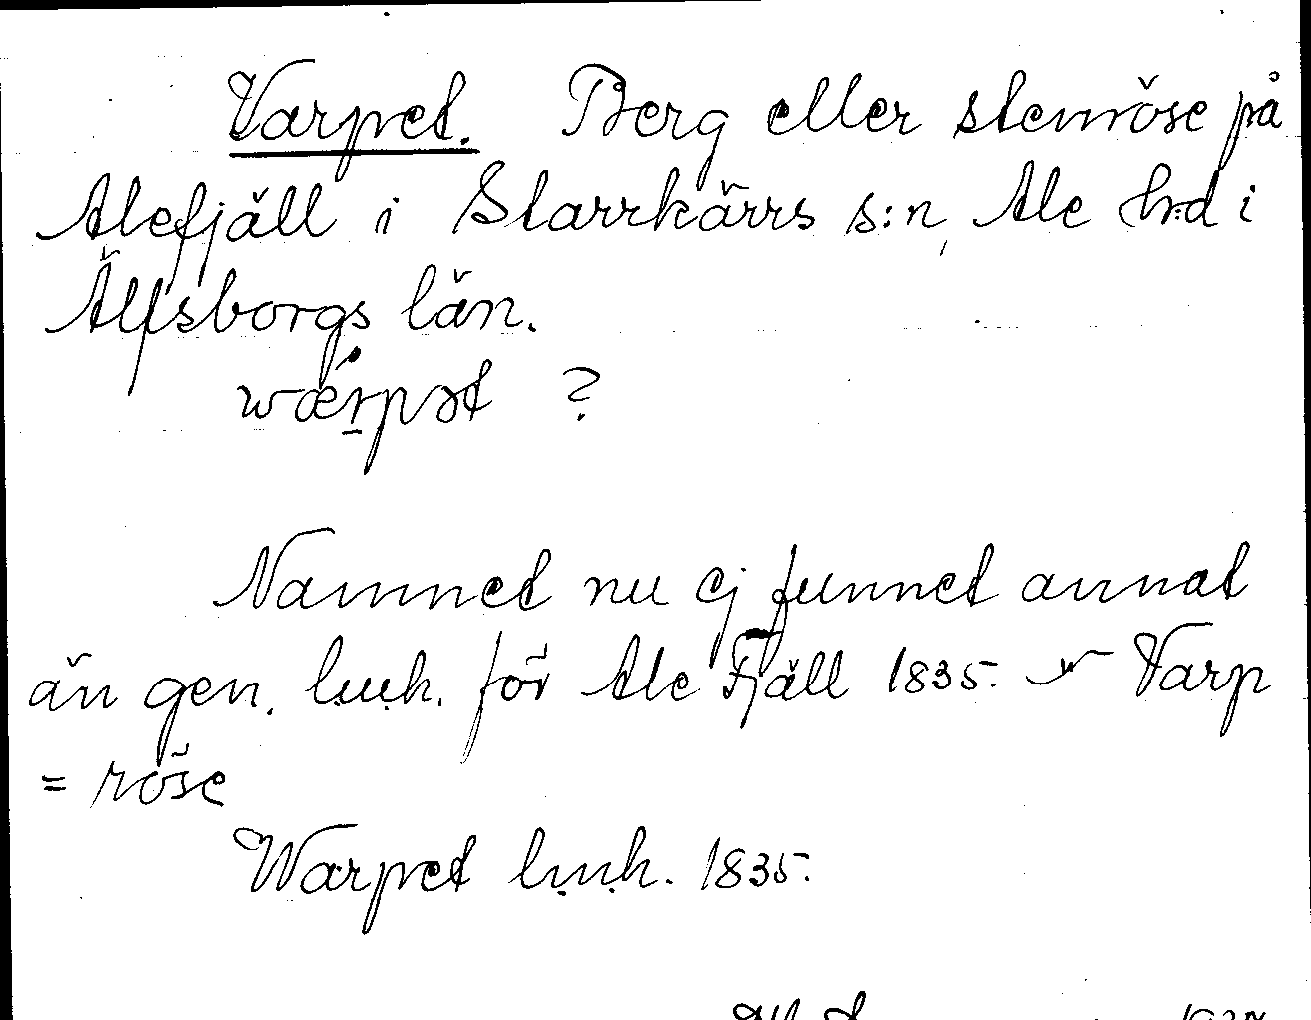 Varpet. Berg eller stenröse på
Alefjäll i Starrkärrs s:n, Ale h:d i
Älfsborgs län.
wǽrpət ?
Namnet nu ej funnet annat
än gen. l.m.k. för Ale Fjäll 1835. Varp
= röse
Warpet l.m.k. 1835.